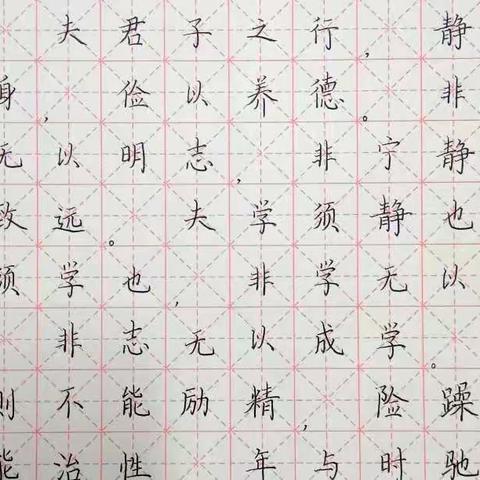 夫君子之行，静
身，俭以养德。非
无以明志，非宁静
致远。夫学须静也
须学也，非学无以
非志无以成学。
则不能励精，险躁
能治性 年与时驰